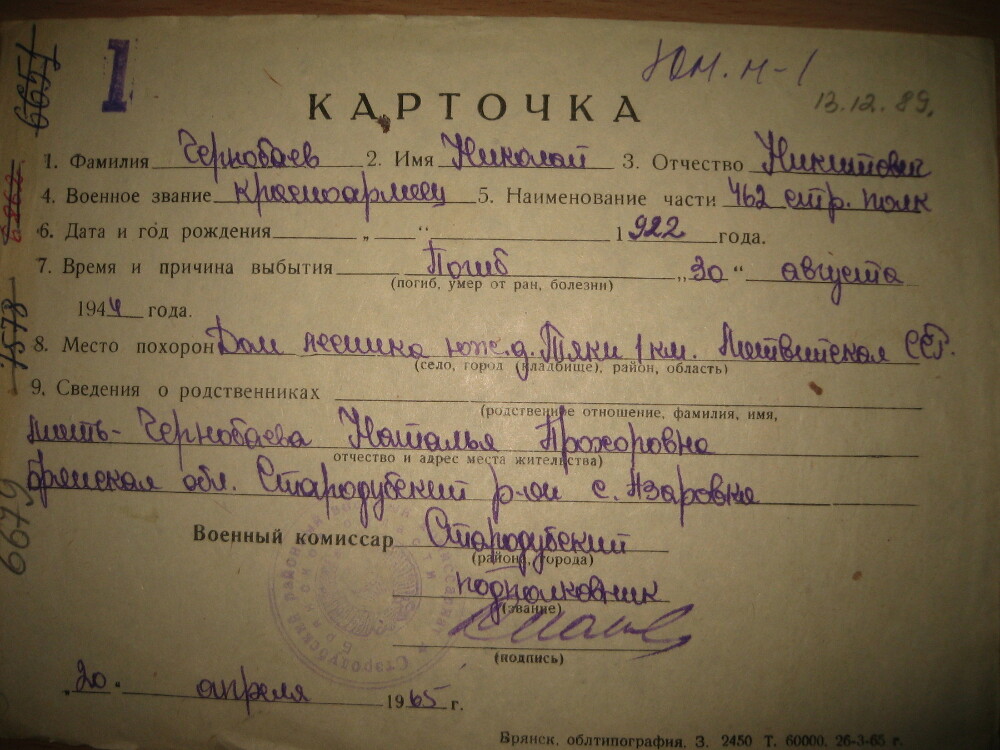 1
Юн. н-1
13.12.89.
КАРТОЧКА
1. Фамилия Чернобаев 2. Имя Николай 3. Отчество Никитович
4. Военное звание красноармеец 5. Наименование части 462 стр. полк
6. Дата и год рождения „ “ 1922 года.
7. Время и причина выбытия Погиб „30“ августа
(погиб, умер от ран, болезни)
1944 года.
8. Место похорон Дом лесника юж.д. Тяки 1 км. Латвийская ССР.
(село, город (кладбище), район, область)
9. Сведения о родственниках
(родственное отношение, фамилия, имя,
мать- Чернобаева Наталья Прохоровна
отчество и адрес места жительства)
Брянская обл. Стародубский р-он с. Азаровка
Военный комиссар Стародубский
(район, города)
подполковник
(звание)
(подпись)
„20“ апреля 1965 г.
Брянск, облтипография. З. 2450 Т. 60000. 26-3-65 г.
6651
7578
6679